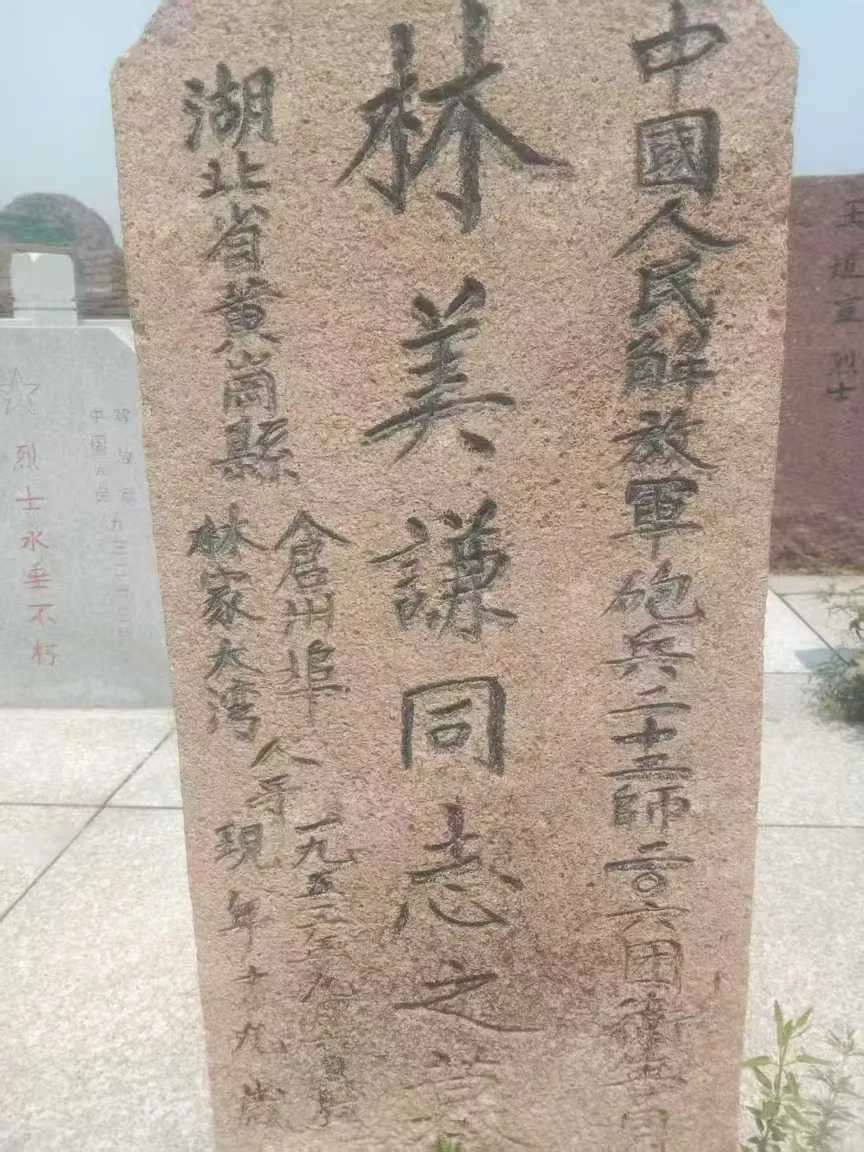 中國人民解放軍砲兵二十三師二〇六团衛
林美謙同志之墓
湖北省黄崗縣
倉州埠
林家大湾
人
一九五
現年十九歲
烈士
中国人民
烈士永垂不朽